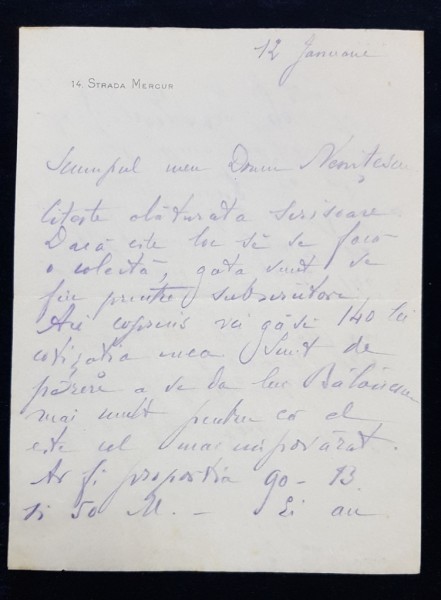 12 Januarie
14. STRADA MERCUR
Scumpul meu Domn Nenițescu
Citește alăturata scrisoare
Dacă este loc să se facă
o colectă, gata sunt să
fiu printre subscriitori
Aci coprins vei găsi 140 lei
cotizația mea Sunt de
părere a se da lui Bălănescu
mai mult pentru că el
este cel mai împovărat.
Ar fi proporția 90 - B
și 50 M. - Și au